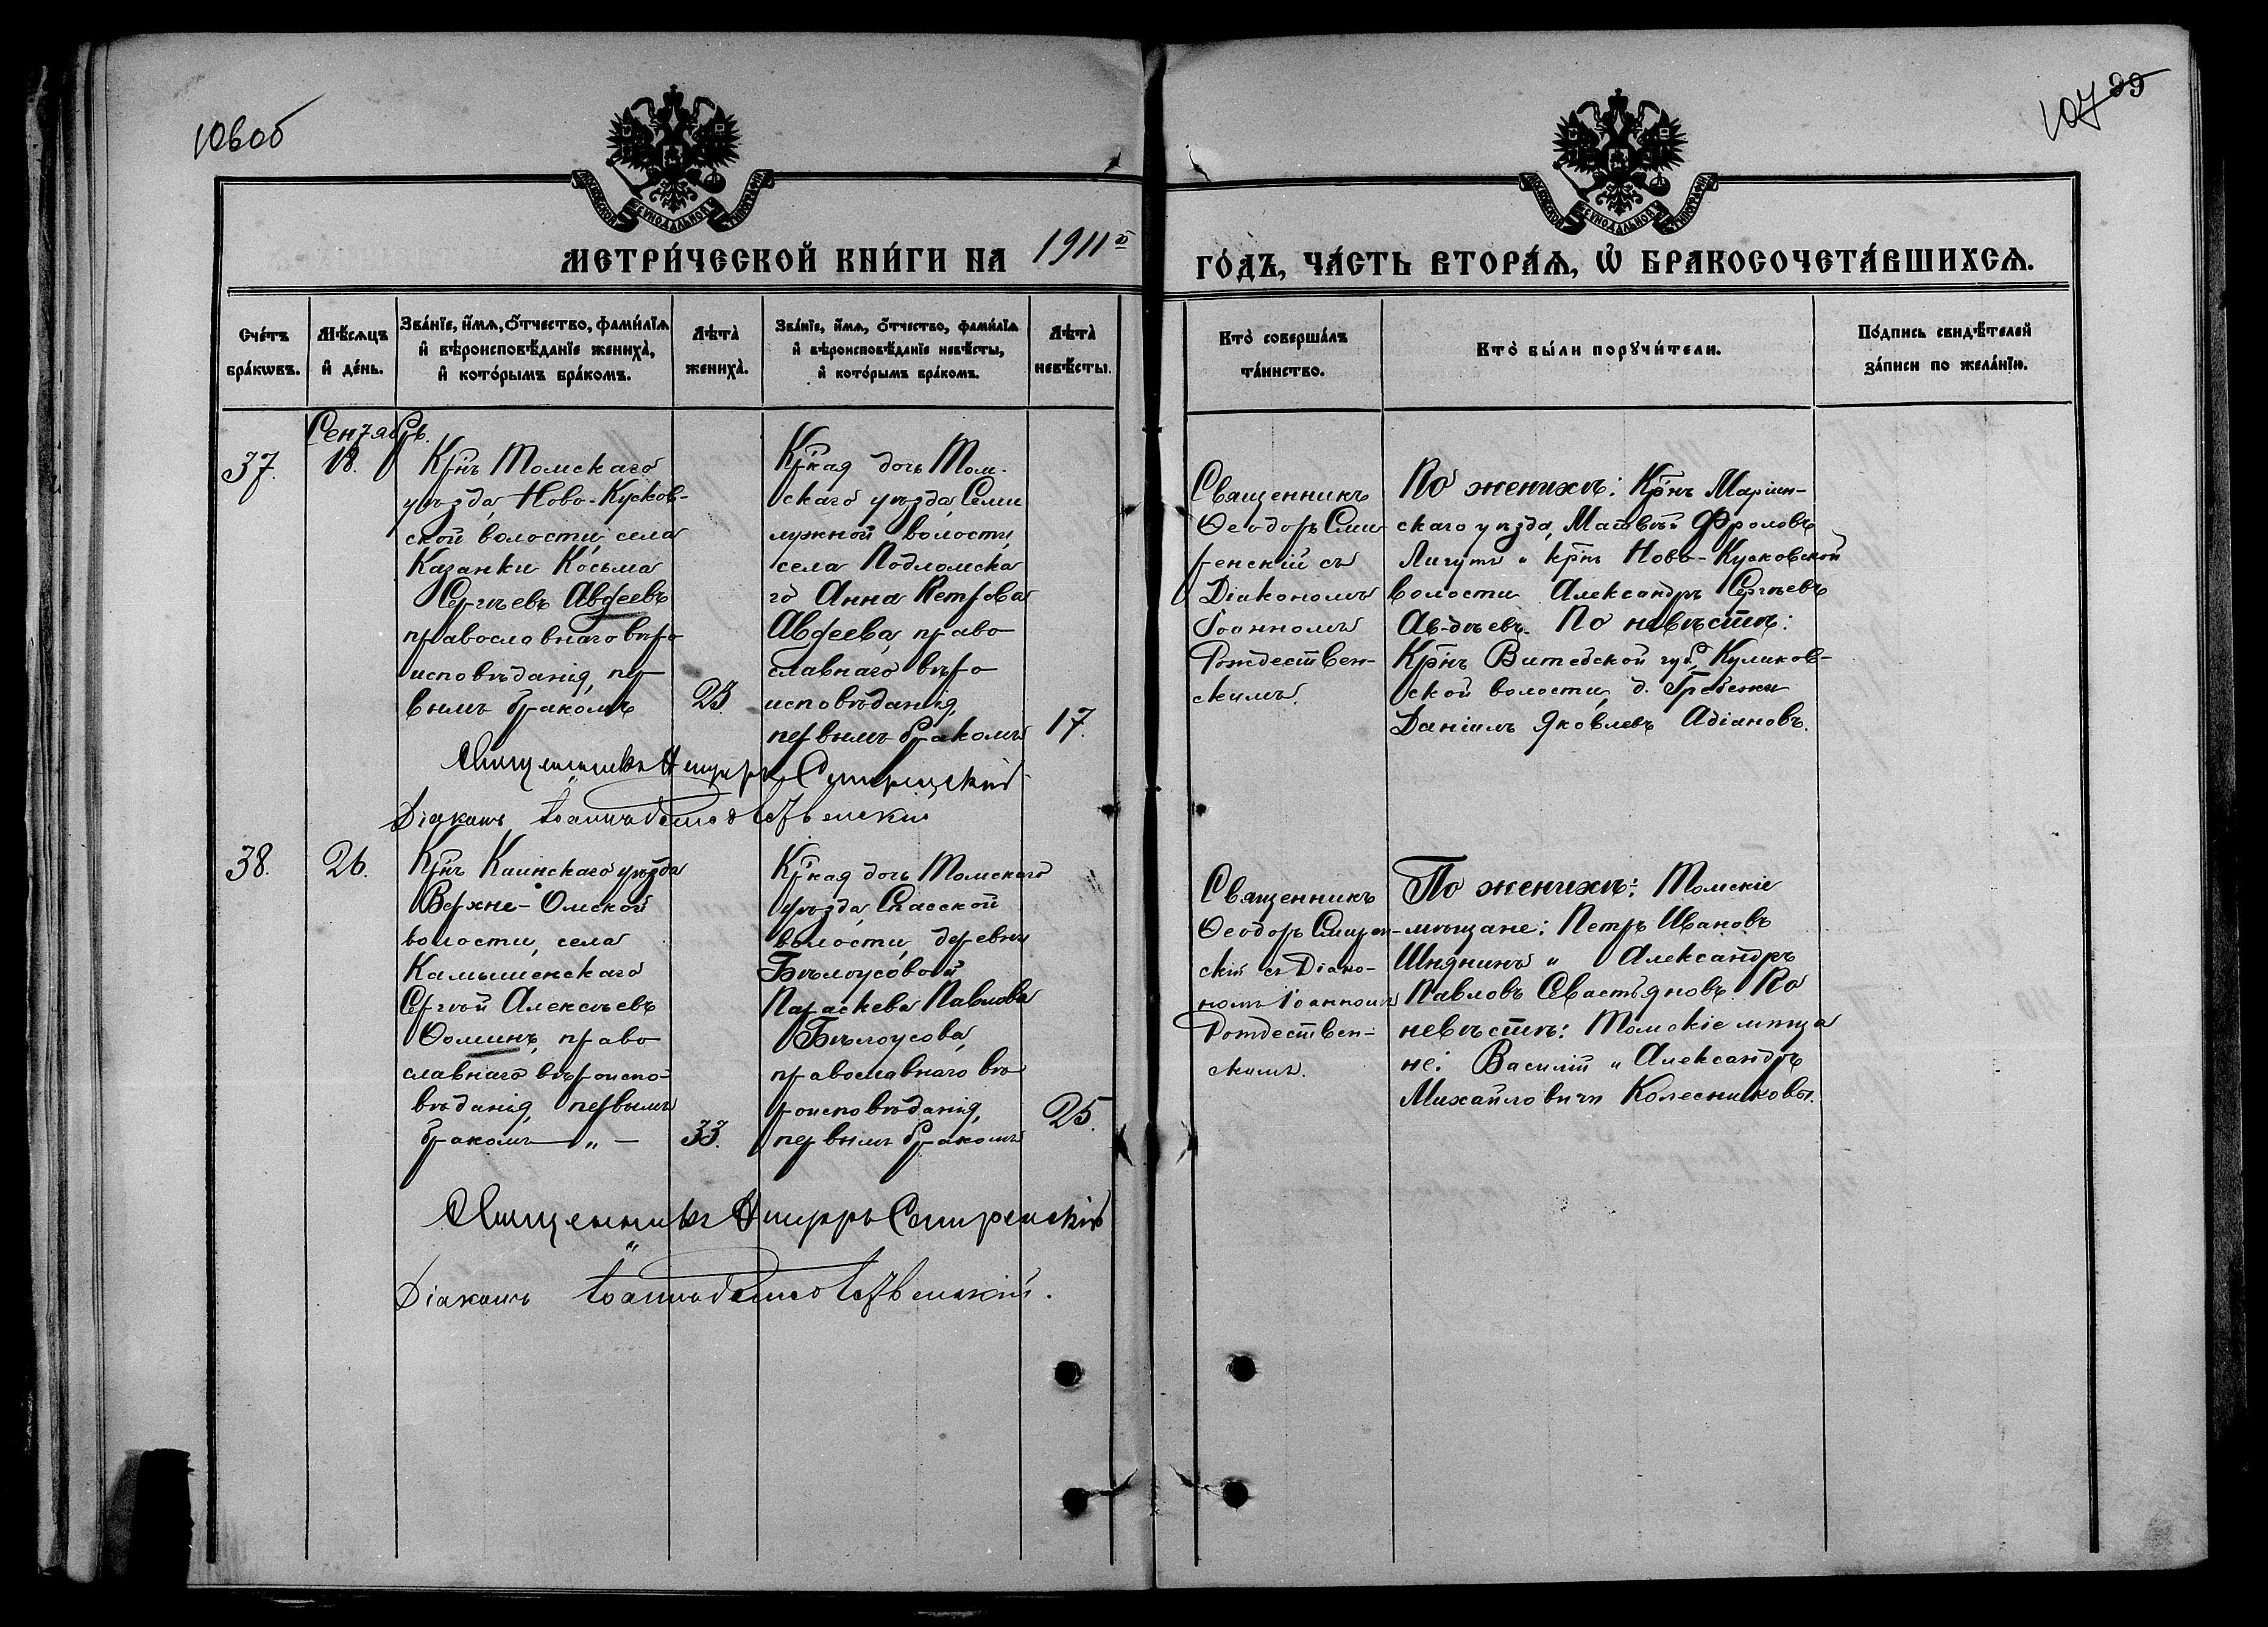 106об
107 99
МОСКОВСКОЙ СѴНОДАЛЬНОЙ ТИПОГРАФІИ
МОСКОВСКОЙ СѴНОДАЛЬНОЙ ТИПОГРАФІИ
МЕТРИ́ЧЕСКОЙ КНИ́ГИ НА 1911й ГО́ДЪ, ЧА́СТЬ ВТОРА́Я, Ѡ БРАКОСОЧЕТА́ВШИХСЯ.
Сче́тъ
бра́кѡвъ.
Мѣ́сяцъ
и҆ де́нь.
Зва́нїе, и҆́мя, ѻ҆́тчество, фами́лїя
и҆ вѣроисповѣ́данїе жениха̀,
и҆ кото́рымъ бра́комъ.
Лѣта̀
жениха̀.
Зва́нїе, и҆́мя, ѻ҆́тчество, фами́лїя
и҆ вѣроисповѣ́данїе невѣ́сты,
и҆ кото́рымъ бра́комъ.
Лѣта̀
невѣ́сты.
Кто̀ соверша́лъ
та́инство.
Кто̀ бы́ли порꙋчи́тели.
По́дпись свидѣ́телей
за́писи по жела́нїю.
37.
Сентябрь.
18.
Крнъ Томскаго
уѣзда, Ново-Кусков-
ской волости, села
Казанки Косьма
Сергѣевъ Авдеевъ
православнаго вѣро
исповѣданія, пер
вымъ бракомъ
23.
Кркая дочь Том-
скаго уѣзда, Семи
лужной волости,
села Подломска
го Анна Петрова
Авдеева, право
славнаго вѣро
исповѣданія,
первымъ бракомъ
17.
Священникъ
Ѳеодоръ Сми
ренскій съ
Діакономъ
Іоанномъ
Рождествен-
скимъ.
По женихѣ: Крнъ Маріин-
скаго уѣзда, Матвѣй Фроловъ
Лигутъ и крнъ Ново-Кусковской
волости Александръ Сергѣевъ
Ав-дѣевъ. По невѣстѣ:
Крнъ Витебской губ. Куликов-
ской волости, д. Гребенки
Даніилъ Яковлевъ Адіановъ.
Священникъ Ѳеодоръ Смиренскій
Діаконъ Іоаннъ Рождественскій
38.
26.
Крнъ Каинскаго уѣзда
Верхне-Омской
волости, села
Камышенскаго
Сергѣй Алексѣевъ
Ѳоминъ, право
славнаго вѣроиспо-
вѣданія, первымъ
бракомъ — " —
33.
Кркая дочь Томскаго
уѣзда, Спасской
волости, деревни
Бѣлоусовой
Параскева Павлова
Бѣлоусова,
православнаго вѣ
роисповѣданія,
первымъ бракомъ
25.
Священникъ
Ѳеодоръ Смирен-
скій съ Діако-
номъ Іоанномъ
Рождествен-
скимъ.
По женихѣ: Томскіе
мѣщане: Петръ Ивановъ
Шнянинъ и Александръ
Павловъ Севастьяновъ. По
невѣстѣ: Томскіе мѣща
не: Василій и Александръ
Михайловичи Колесниковы.
Священникъ Ѳеодоръ Смиренскій
Діаконъ Іоаннъ Рождественскій.